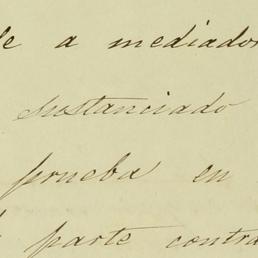 le a mediador
sustanciado
prueba en
parte contra